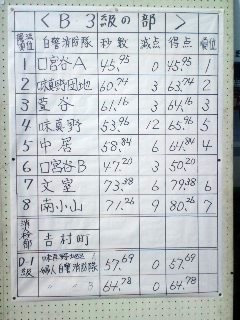 ＜B 3級の部＞
順位 自警消防隊 秒数 減点 得点 順位
1 口宮谷A 45.95 0 45.95 1
2 味真野団地 60.74 3 63.74 2
3 萱谷 61.16 3 64.16 3
4 味真野 53.96 12 65.96 5
5 中居 58.84 6 64.84 4
6 口宮谷B 47.20 3 50.20
7 文室 73.38 6 79.38 6
8 南小山 71.26 9 80.26 7
吉村町
D-1級 味真野地区婦人自警消防隊 57.69 0 57.69
〃 B 64.78 0 64.78